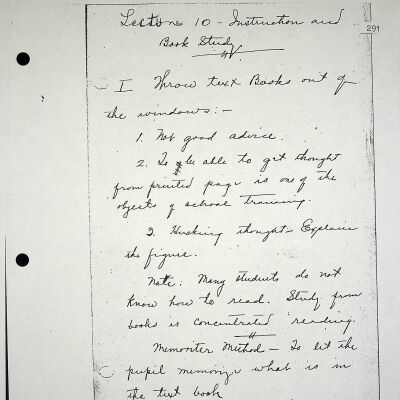 Lecture 10 - Instruction and
Book Study
291
I Throw text Books out of
the windows: -
1. Not good advice.
2. To be able to get thought
from printed page is one of the
objects of school training.
2. Husking thought - Explain
the figure.
Note: Many students do not
know how to read. Study from
books is concentrated reading.
Memoriter Method - To let the
pupil memorize what is in
the text book